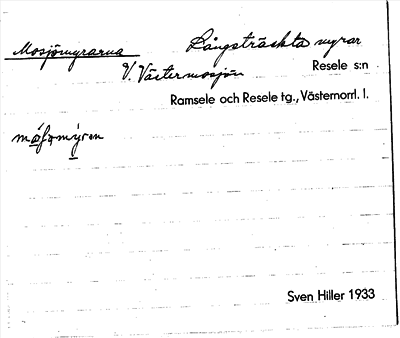 Mosjömyrarna
Långsträckta myrar
V. Västermosjön
Resele s:n
Ramsele och Resele tg., Västernorrl. l.
Sven Hiller 1933